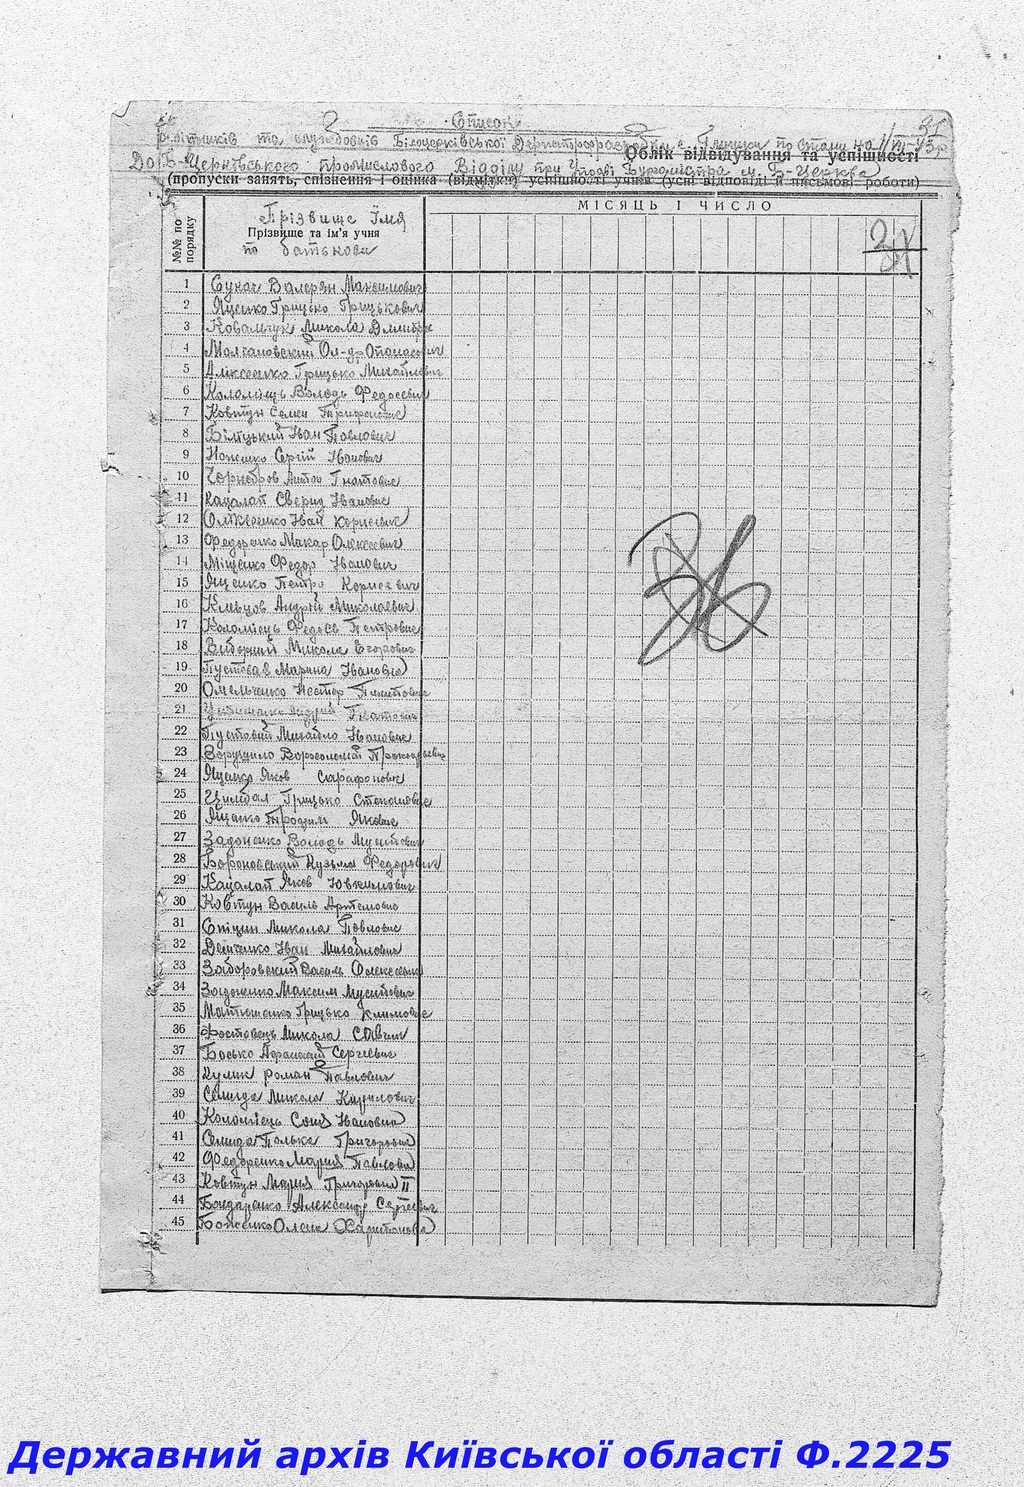 Список
робітників та службовців Білоцерківської Держторфрозробки с. Глушки по стану на 1/VII-43р
Облік відвідування та успішності
До Б-Церківського промислового Відділу при Управі Бургомістра м. Б-Церква
(пропуски занять, спізнення і оцінка (відмітки) успішності учнів (усні відповіді й письмові роботи)
№№ по порядку
Прізвище Їмя
Прізвище та ім'я учня
по батькови
МІСЯЦЬ І ЧИСЛО
1 Валерян Максимович
2 Яценко Грицько Грицькович
3 Ковальчук Микола Дмитро
4 Малгановский Ол-др Опанасович
5 Аліксеенко Грицько Михайлович
6 Коломієць Володь Федосевич
7 Ковтун Семен Трифонович
8 Білецький Іван Павлович
9 Сергій Іванович
10 Чорнобров Антон Гнатович
11 Кацалап Сверид Іванович
12 Оліксеенко Иван Корнеевич
13 Федоренко Макар Олексеевич
14 Міщенко Федор Іванович
15 Яценко Петро Корнеевич
16 Андрій Миколаевич
17 Коломієць Федось Петрович
18 Виборний Микола Егорович
19 Пустовая Марина Івановна
20 Омельченко Нестор Никитович
21 Андрий Гнатович
22 Пустовий Михайло Іванович
23 Зарущило Варфоломій
24 Яценко Яков Сарафонович
25 Цимбал Грицько Степанович
26 Яценко Трофим Якович
27 Задоенко Володь Мусійович
28 Вороновський Кузьма Федорович
29 Кацалап Яков Ювхимович
30 Ковтун Василь Артемович
31 Спіцин Микола Павлович
32 Дейченко Іван Михайлович
33 Заборовский Василь Олексеевич
34 Задоенко Максим Мусійович
35 Матюшенко Грицько Климович
36 Фастовець Микола
37 Босько Афанасий Сергіевич
38 Кулик Роман Павлович
39 Семида Микола Кирилович
40 Коломієць Соня Івановна
41 Семида Палька Григоровна
42 Федоренко Мария Павловна
43 Ковтун Мария Григоровна II
44 Бондаренко Александр Сергіевич
45 Боженко Олена Харитоновна
Державний архів Київської області Ф.2225